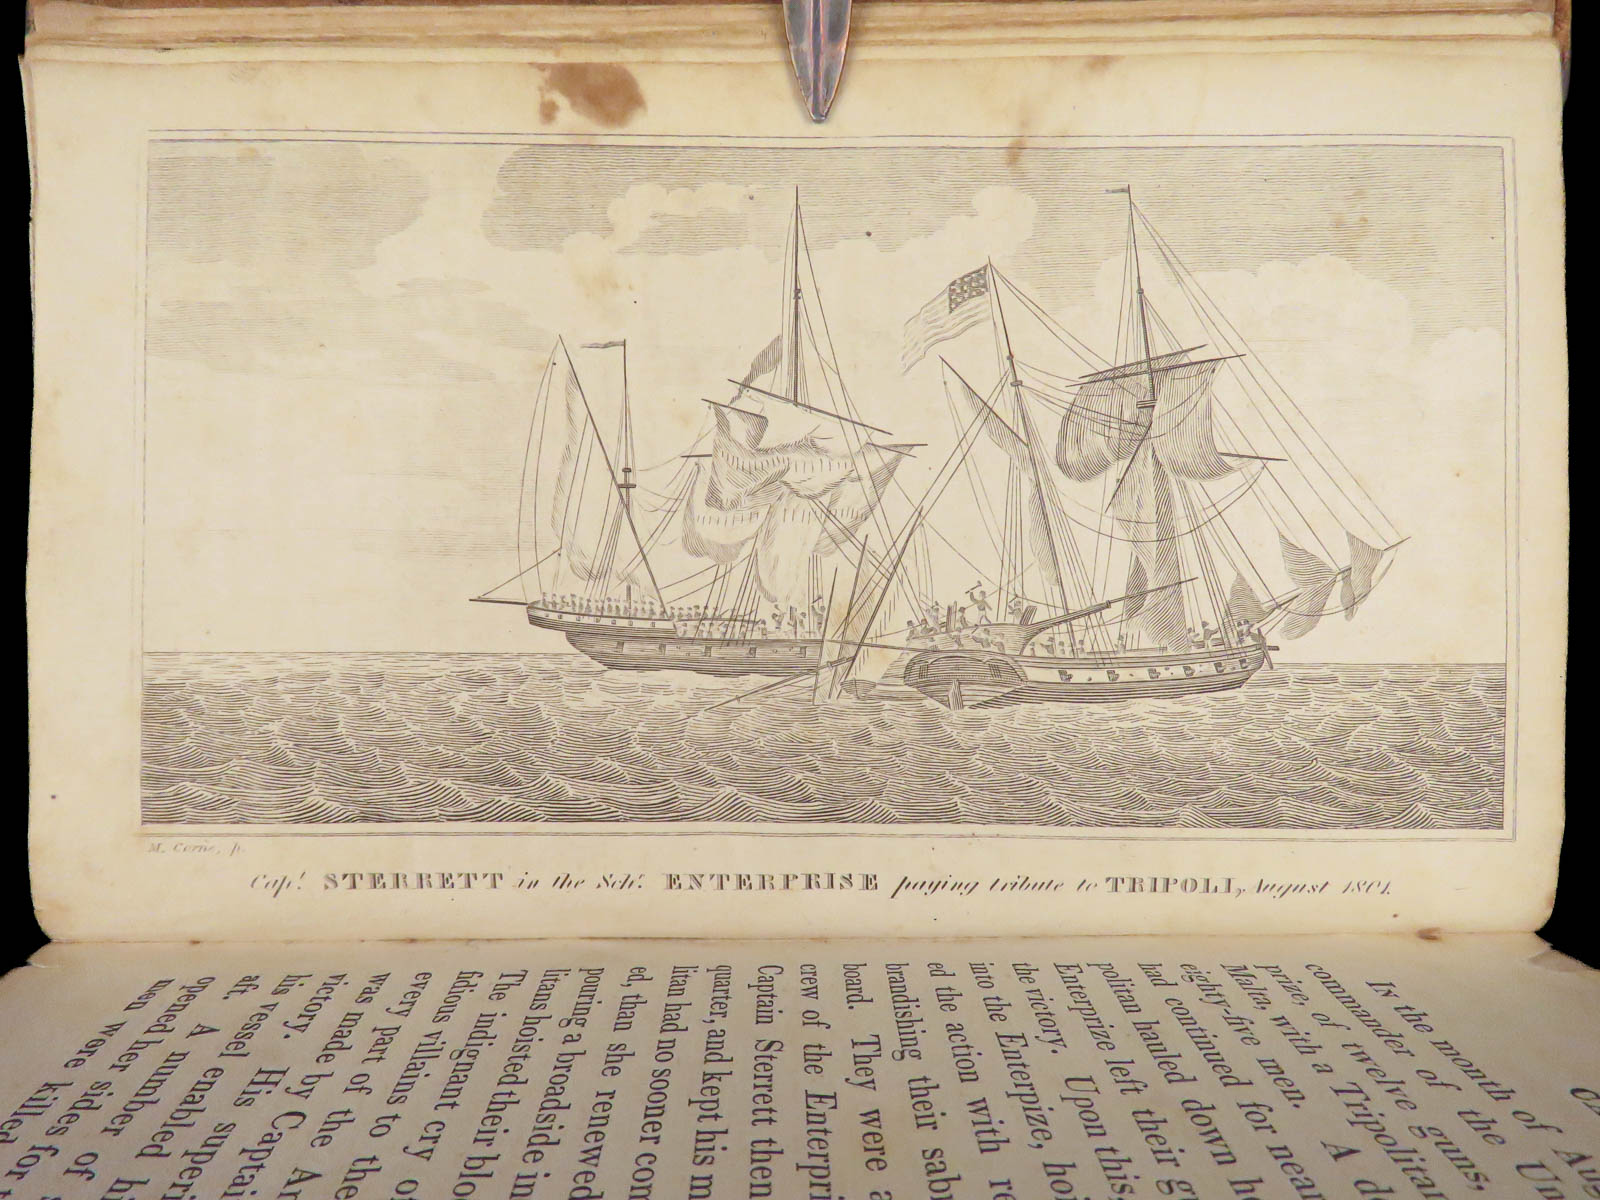 M. Cornè, p.
Capt. STERRETT in the Schr. ENTERPRISE paying tribute to TRIPOLI, August 1801.
IN the month of Au
commander of the U
prize, of twelve guns,
Malta, with a Tripolita
eighty-five men. A d
had continued for near
politan hauled down h
Enterprize left their g
the victory. Upon this,
into the Enterpize, hoi
ed the action with re
brandishing their sab
board. They were a
crew of the Enterpri
Captain Sterrett then
quarter, and kept his m
litan had no sooner com
ed, than she renewed
pouring a broadside in
litans hoisted their blo
The indignant cry o
fidious villains to the
every part of the Ar
was made by Captai
victory. His superi
his vessel enabled hi
aft. A number of
opened her sides for
men were killed